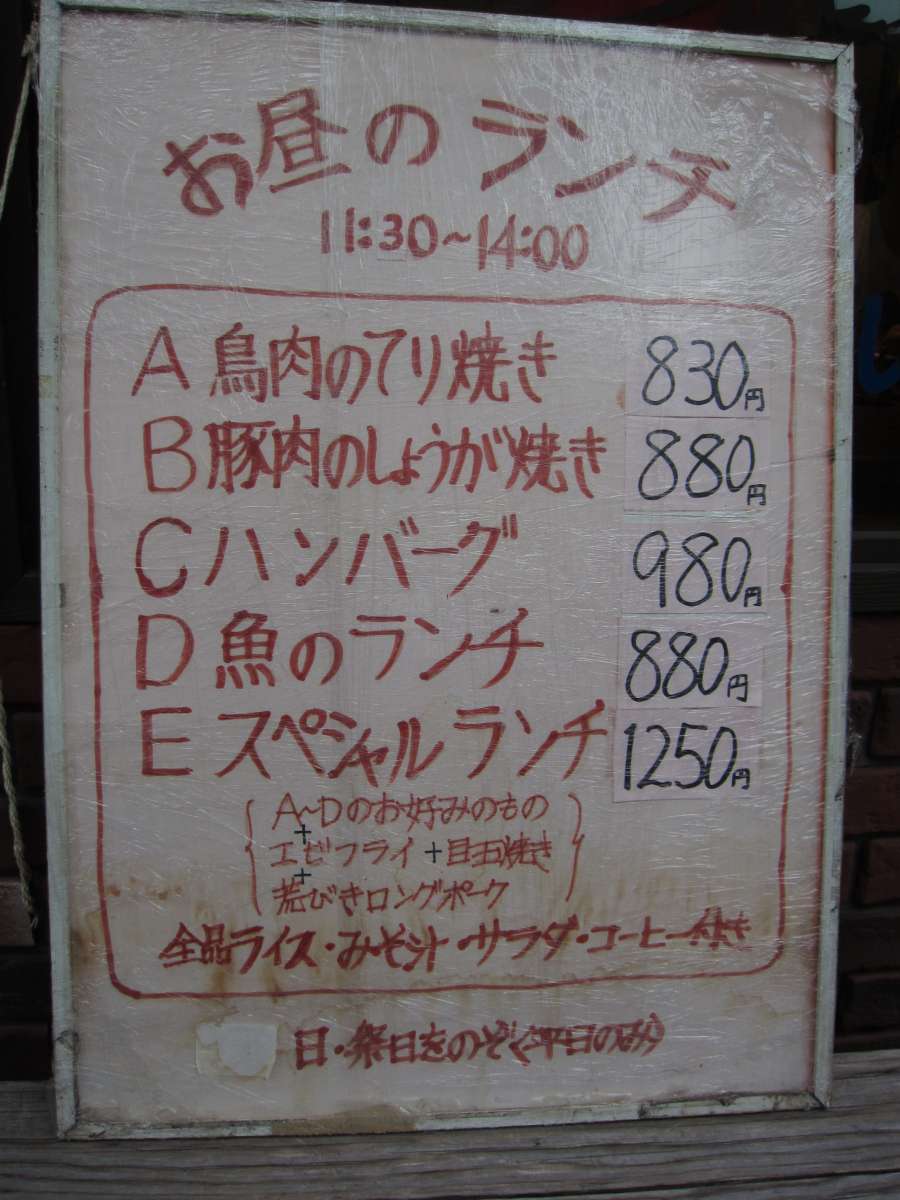 お昼のランチ
11:30~14:00
A 鳥肉のてり焼き 830円
B 豚肉のしょうが焼き 880円
C ハンバーグ 980円
D 魚のランチ 880円
E スペシャルランチ 1250円
A~Dのお好みのもの
+
エビフライ+目玉焼き
+
荒びきロングポーク
全品ライス・みそ汁・サラダ・コーヒー付き
日・祭日をのぞく(平日のみ)